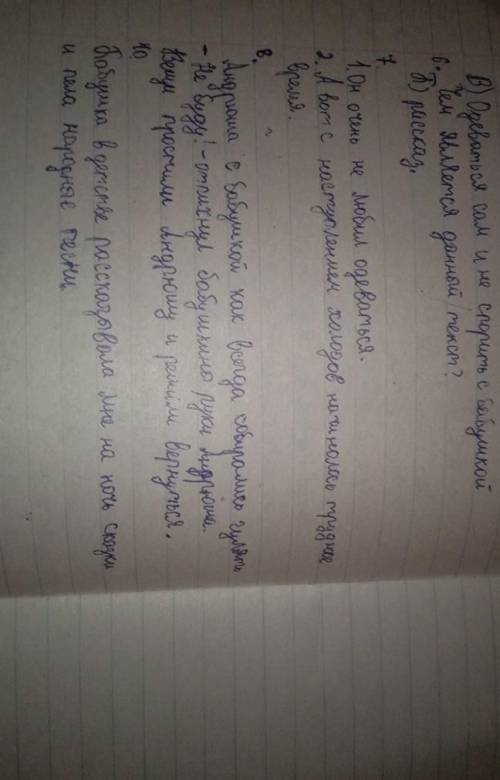 В) Одеваться сам и не спорить с бабушкой
6. Чем является данный текст?
Б) рассказ.
7.
1. Он очень не любил одеваться.
2. А вот с наступлением холодов начиналось трудное
время.
8.
Андрюша с бабушкой как всегда собирались гулять
- Не буду! - отпихнул бабушкины руки Андрюша.
Вещи простили Андрюшу и решили вернуться.
10.
Бабушка в детстве рассказывала мне на ночь сказки
и пела народные песни.